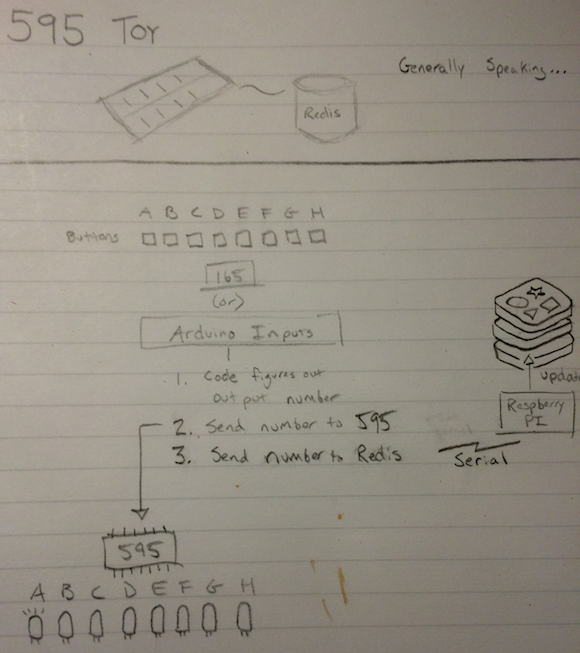 595 Toy
Generally Speaking...
Redis
A B C D E F G H
Buttons
165
(or)
Arduino Inputs
1. Code figures out
out put number
2. Send number to 595
3. Send number to Redis
update
Raspberry
PI
Serial
595
A B C D E F G H